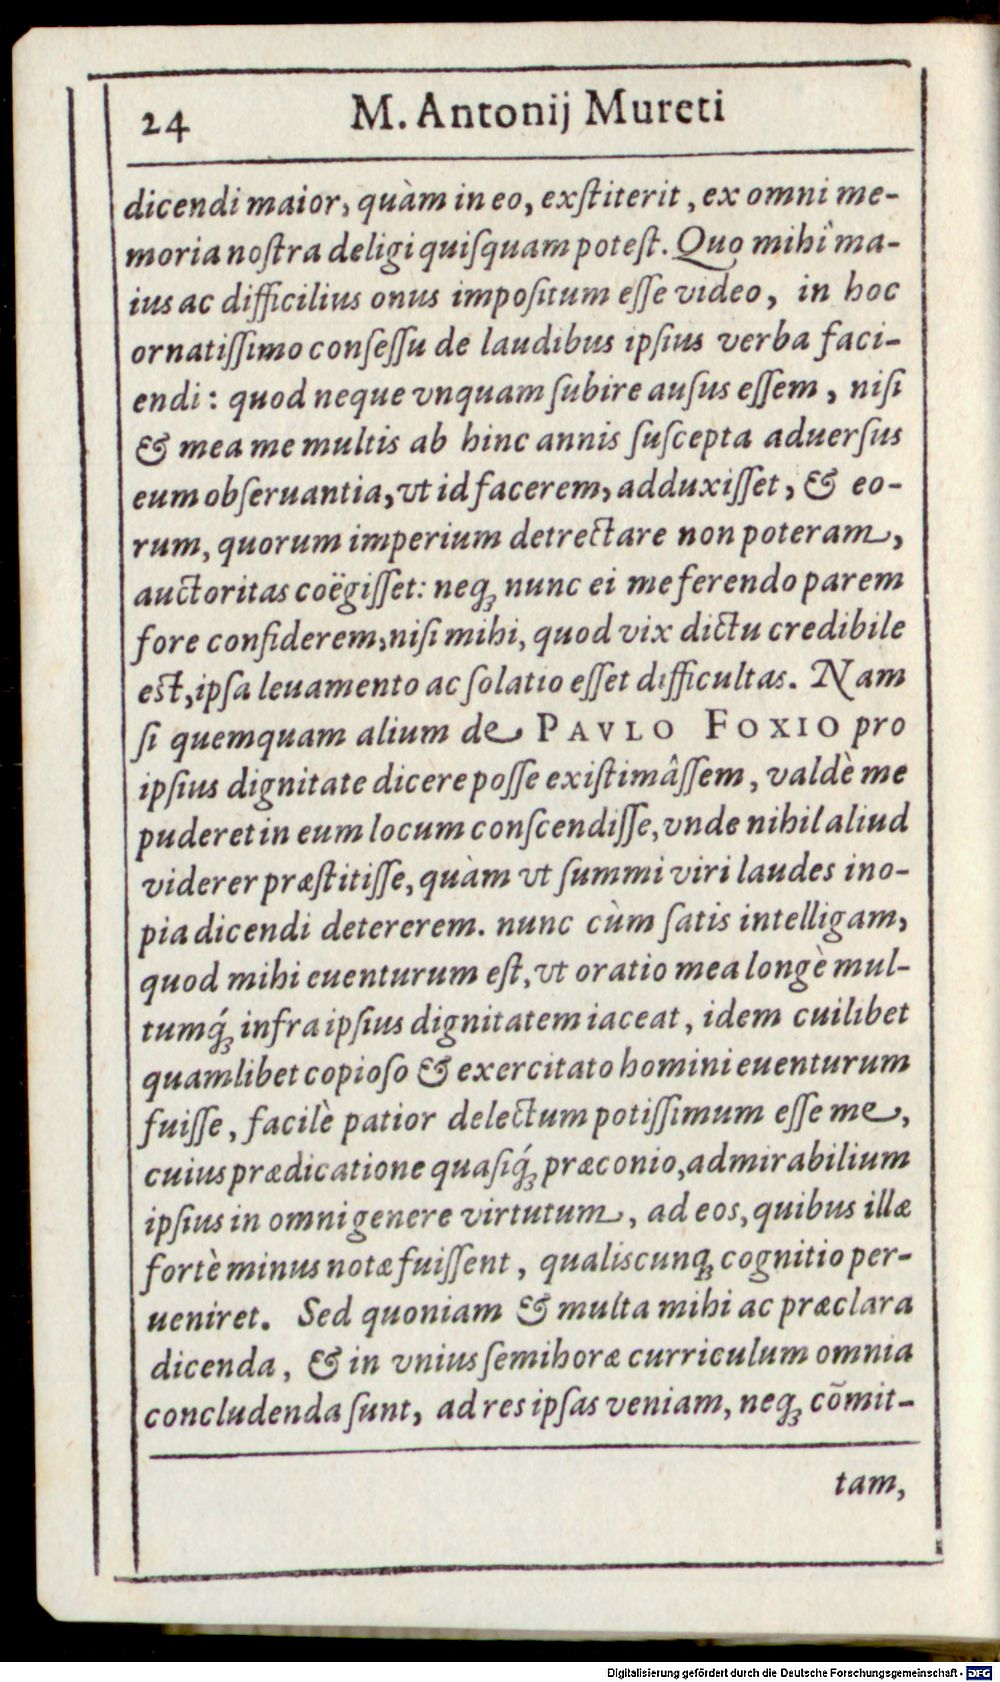 24 M. Antonij Mureti
dicendi maior, quàm in eo, exſtiterit, ex omni me-
moria noſtra deligi quiſquam poteſt. Quo mihi ma-
ius ac difficilius onus impoſitum eſſe video, in hoc
ornatiſſimo conſeſſu de laudibus ipſius verba faci-
endi: quod neque vnquam ſubire auſus eſſem, niſi
& mea me multis ab hinc annis ſuſcepta aduerſus
eum obſeruantia, vt id facerem, adduxiſſet, & eo-
rum, quorum imperium detrectare non poteram,
auctoritas coëgiſſet: neqꝫ nunc ei me ferendo parem
fore confiderem, niſi mihi, quod vix dictu credibile
est, ipſa leuamento ac ſolatio eſſet difficultas. Nam
ſi quemquam alium de PAVLO FOXIO pro
ipſius dignitate dicere poſſe exiſtimâſſem, valdè me
puderet in eum locum conſcendiſſe, vnde nihil aliud
viderer præſtitiſſe, quàm vt ſummi viri laudes ino-
pia dicendi detererem. nunc cùm ſatis intelligam,
quod mihi euenturum eſt, vt oratio mea longè mul-
tumq́ꝫ infra ipſius dignitatem iaceat, idem cuilibet
quamlibet copioſo & exercitato homini euenturum
fuiſſe, facilè patior delectum potiſſimum eſſe me,
cuius prædicatione quaſiq́ꝫ præconio, admirabilium
ipſius in omni genere virtutum, ad eos, quibus illæ
fortè minus notæ fuiſſent, qualiscunqꝫ cognitio per-
ueniret. Sed quoniam & multa mihi ac præclara
dicenda, & in vnius ſemihoræ curriculum omnia
concludenda ſunt, ad res ipſas veniam, neqꝫ cõmit-
tam,
Digitalisierung gefördert durch die Deutsche Forschungsgemeinschaft - DFG